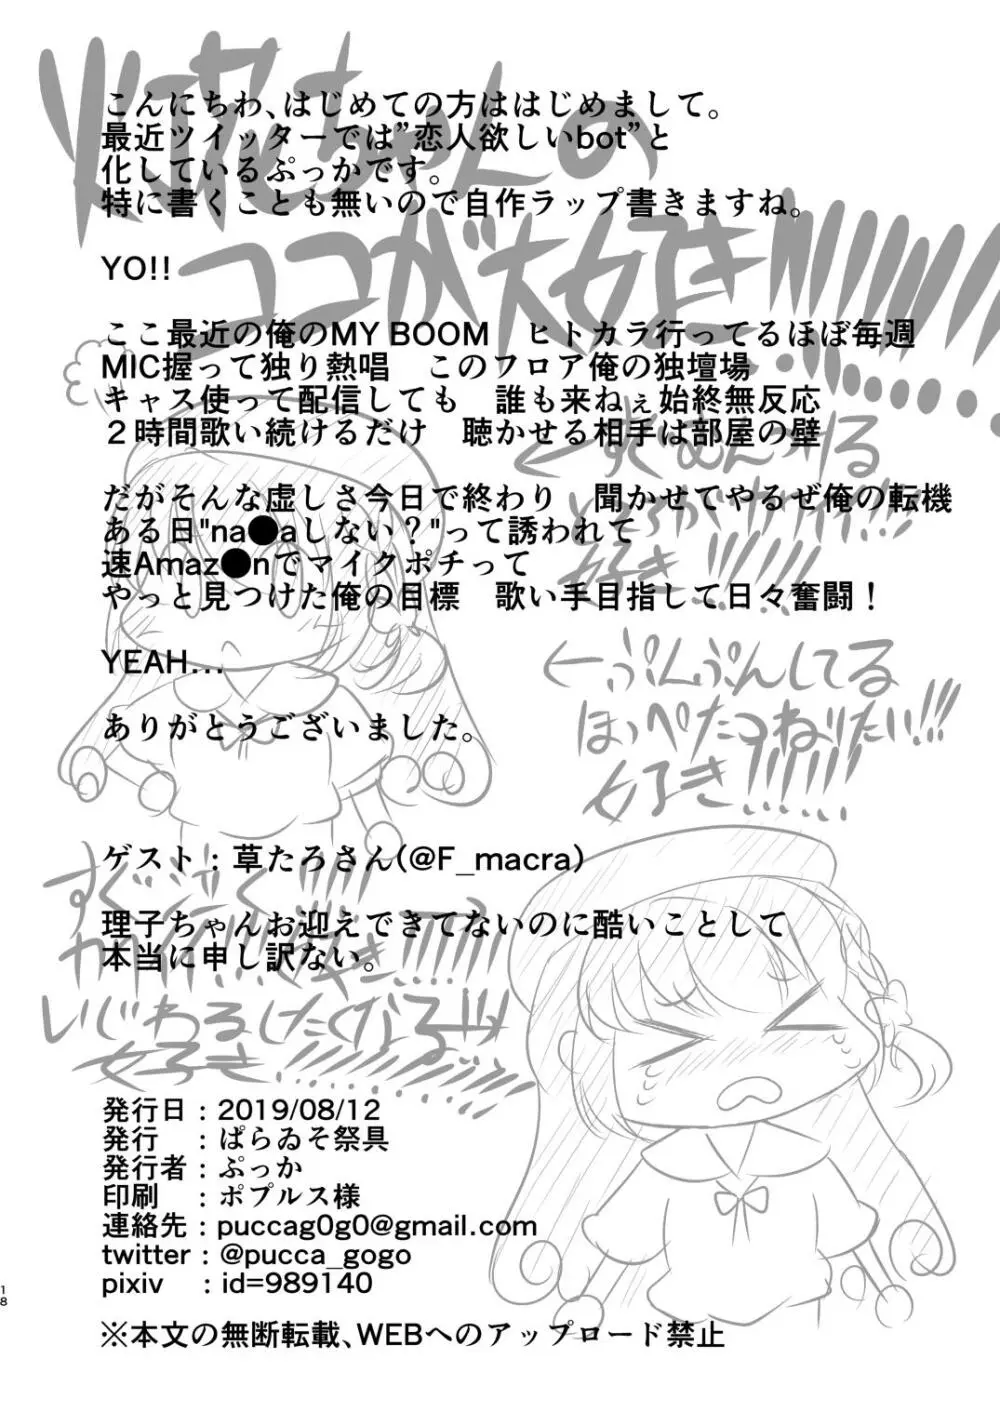 火花ちゃんの
ココが大好き!!!!!!!!!!
こんにちわ、はじめての方ははじめまして。
最近ツイッターでは”恋人欲しいbot”と
化しているぷっかです。
特に書くことも無いので自作ラップ書きますね。
YO!!
ここ最近の俺のMY BOOM　ヒトカラ行ってるほぼ毎週
MIC握って独り熱唱　このフロア俺の独壇場
キャス使って配信しても　誰も来ねぇ始終無反応
２時間歌い続けるだけ　聴かせる相手は部屋の壁
←すぐむんつける
ところがカワイイ!!!
好き
だがそんな虚しさ今日で終わり　聞かせてやるぜ俺の転機
ある日"na●aしない？"って誘われて
速Amaz●nでマイクポチって
やっと見つけた俺の目標　歌い手目指して日々奮闘！
YEAH...
←ぷんぷんしてる
ほっぺたつねりたい!!!
好き!!!!!!
ありがとうございました。
ゲスト：草たろさん(@F_macra)
理子ちゃんお迎えできてないのに酷いことして
本当に申し訳ない。
いじわるしたくなる!!!
好き
発行日：2019/08/12
発行　：ぱらゐそ祭具
発行者：ぷっか
印刷　：ポプルス様
連絡先：puccag0g0@gmail.com
twitter：@pucca_gogo
pixiv　：id=989140
※本文の無断転載、WEBへのアップロード禁止
18